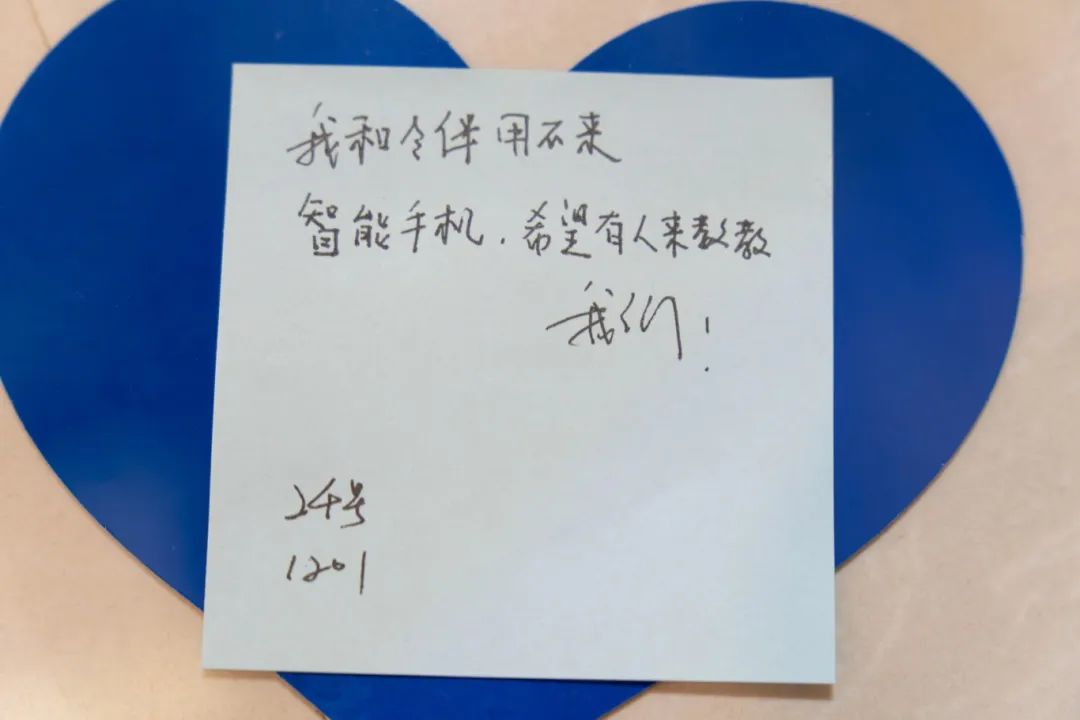 我和令伴用不来
智能手机,希望有人来教教
我们!
24号
1201